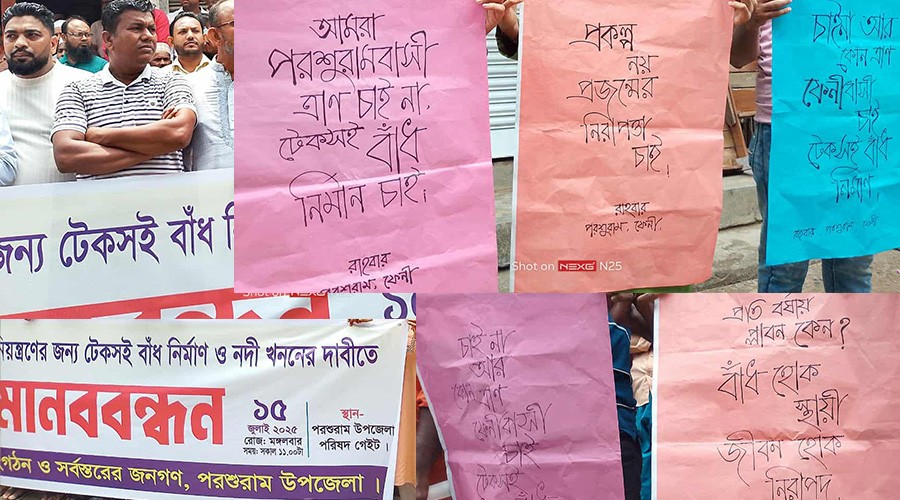 আমরা
পরশুরামবাসী
ত্রাণ চাই না,
টেকসই বাঁধ
নির্মান চাই।
রাহবার
পরশুরাম, ফেনী
প্রকল্প
নয়
প্রজন্মের
নিরাপত্তা
চাই!
রাহবার
পরশুরাম, ফেনী।
Shot on NEXG N25
চাইনা আর
কোন ত্রাণ
ফেনীবাসী
চাই
টেকসই বাঁধ
নির্মাণ
রাহবার পরশুরাম ফেনী
জন্য টেকসই বাঁধ নি
Shot on NEXG
নিয়ন্ত্রণের জন্য টেকসই বাঁধ নির্মাণ ও নদী খননের দাবীতে
মানববন্ধন
১৫
জুলাই ২০২৫
রোজ: মঙ্গলবার
সময়: সকাল ১১.০০টা
স্থান-
পরশুরাম উপজেলা
পরিষদ গেইট।
গঠন ও সর্বস্তরের জনগণ, পরশুরাম উপজেলা।
চাই না
আর
কোন ত্রাণ
ফেনীবাসী
চাই
টেকসই
বাঁধ
প্রতি বর্ষায়
প্লাবন কেন?
বাঁধ হোক
স্থায়ী
জীবন হোক
নিরাপদ